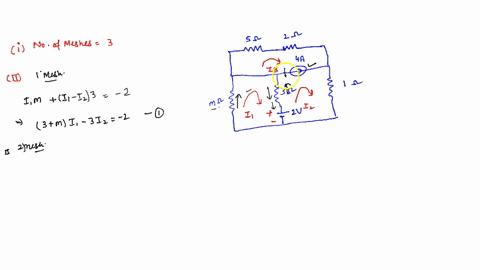 (i) No. of Meshes = 3
(II) 1 Mesh
I₁m + (I₁-I₂)3 = -2
⇒ (3+m)I₁ - 3I₂ = -2 — ①
II 2) Mesh
5Ω 2Ω
4A
I3
mΩ 3Ω 1Ω
I₁ + 2V I₂
-